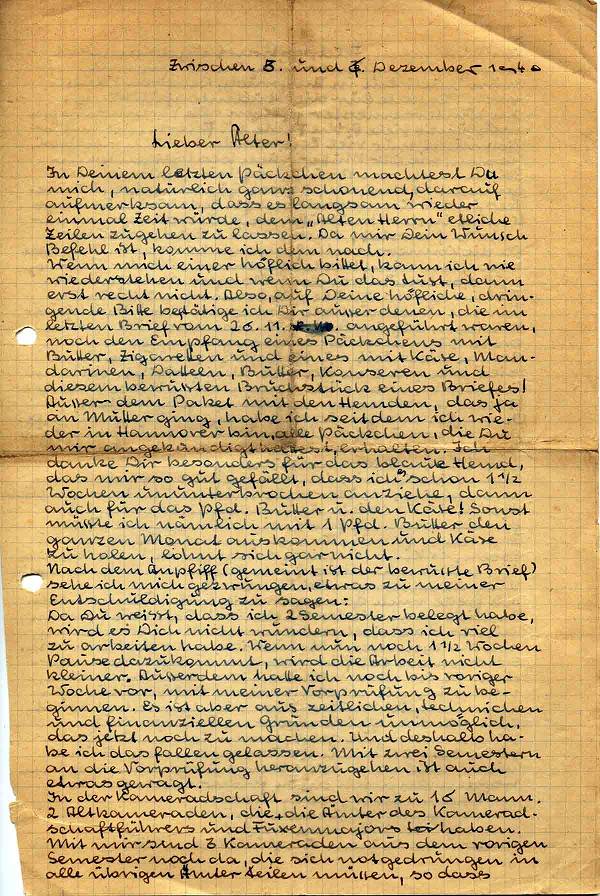 Zwischen 5. und 6. Dezember 1940
Lieber Alter!
In Deinem letzten Päckchen machtest Du
mich, natürlich ganz schonend, darauf
aufmerksam, dass es langsam wieder
einmal Zeit würde, dem „Alten Herrn" etliche
Zeilen zugehen zu lassen. Da mir Dein Wunsch
Befehl ist, komme ich dem nach.
Wenn mich einer höflich bittet, kann ich nie
wiederstehen und wenn Du das tust, dann
erst recht nicht. Also, auf Deine höfliche, drin-
gende Bitte bestätige ich Dir ausser denen, die im
letzten Brief vom 26. 11. angeführt waren,
noch den Empfang eines Päckchens mit
Butter, Zigaretten und eines mit Käse, Man-
darinen, Datteln, Butter, Konserven und
diesem bewussten Bruchstück eines Briefes!
Ausser dem Paket mit den Hemden, das ja
an Mutter ging, habe ich seit dem ich wie-
der in Hannover bin, alle Päckchen, die Du
mir angekündigt hattest, erhalten. Ich
danke Dir besonders für das blaue Hemd,
das mir so gut gefällt, dass ich's schon 1 1/2
Wochen ununterbrochen anziehe, dann
auch für das Pfd. Butter u. den Käse! Sonst
müsste ich nämlich mit 1 Pfd. Butter den
ganzen Monat auskommen und Käse
zu holen, lohnt sich gar nicht.
Nach dem Anpfiff (gemeint ist der bewusste Brief)
sehe ich mich gezwungen, etwas zu meiner
Entschuldigung zu sagen:
Da Du weisst, dass ich 2 Semester belegt habe,
wird es Dich nicht wundern, dass ich viel
zu arbeiten habe. Wenn nun noch 1 1/2 Wochen
Pause dazukommt, wird die Arbeit nicht
kleiner. Ausserdem hatte ich noch bis voriger
Woche vor, mit meiner Vorprüfung zu be-
ginnen. Es ist aber aus zeitlichen, technischen
und finanziellen Gründen unmöglich,
das jetzt noch zu machen. Und deshalb ha-
be ich das fallen gelassen. Mit zwei Semestern
an die Vorprüfung heranzugehen ist auch
etwas gewagt.
In der Kameradschaft sind wir zu 16 Mann.
2 Altkameraden, die die Ämter des Kamerad-
schaftführers und Fuxenmajors haben.
Mit mir sind 3 Kameraden aus dem vorigen
Semester noch da, die sich notgedrungen in
alle übrigen Ämter teilen müssen, so dass